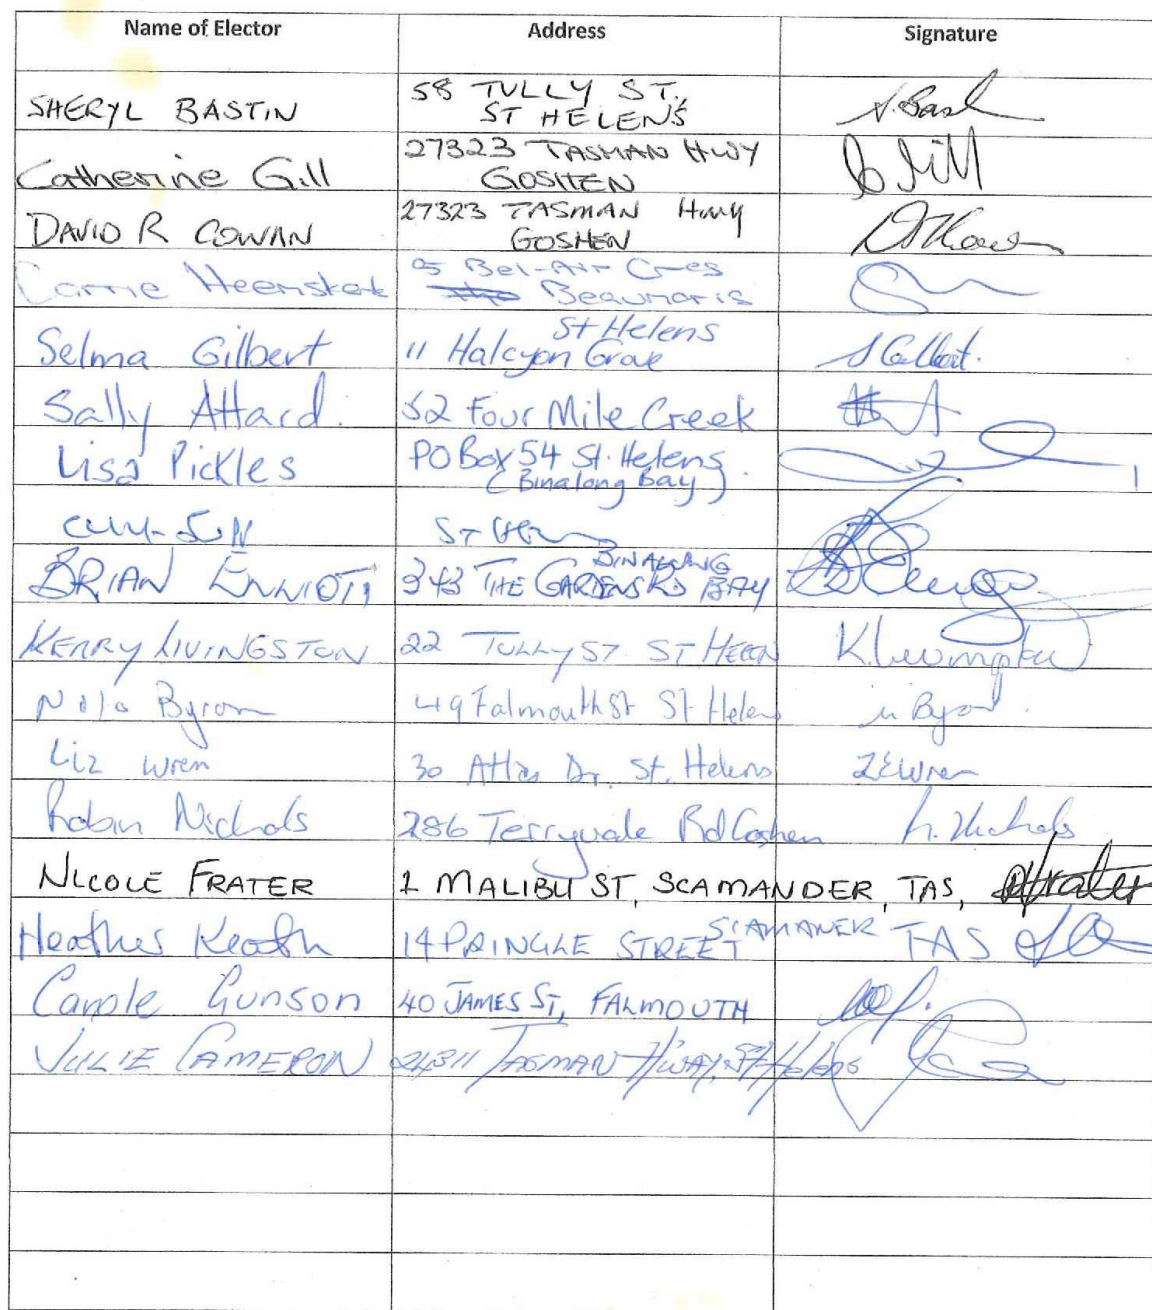 Name of Elector Address Signature
SHERYL BASTIN 58 TULLY ST.,
ST HELENS S. Bast
Catherine Gill 27323 TASMAN HWY
GOSHEN C Gill
DAVID R COWAN 27323 TASMAN HWY
GOSHEN
Carrie Heenskek 5 Bel-Air Cres
Beaumaris
Selma Gilbert 11 Halcyon Grove
St Helens S Gilbert.
Sally Attard. 52 Four Mile Creek
Lisa Pickles PO Box 54 St. Helens.
(Binalong Bay)
ST
BRIAN 343 THE GARDENS RD BINALONG
BAY
KERRY LIVINGSTON 22 TULLY ST. ST HELEN K. Livingston
Byrom 49 Falmouth St St Helens Byrom
Liz Wren 30 Atlas Dr. St. Helens L E Wren
Robin Nichols 286 Terryvale Rd Goshen R. Nichols
NICOLE FRATER 1 MALIBU ST, SCAMANDER, TAS, Frater
Heather 14 PRINGLE STREET SCAMANER TAS
Carole Gunson 40 JAMES ST, FALMOUTH
JULIE CAMERON 24311 TASMAN H'WAY, St Helens